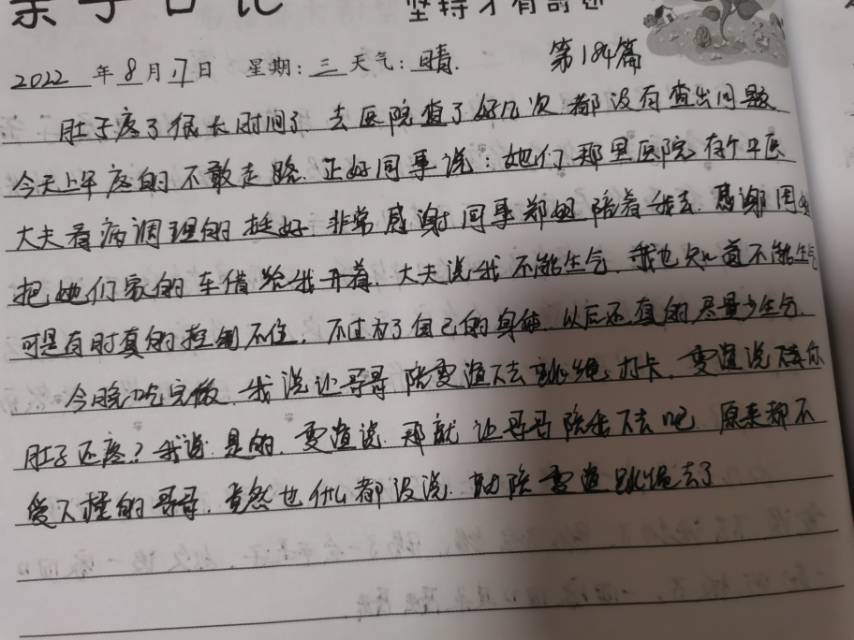 亲子日记 坚持才有奇迹
2022年8月17日 星期:三 天气:晴. 第184篇
肚子疼了很长时间了,去医院查了好几次都没有查出问题
今天上午疼的不敢走路.正好同事说:她们那里医院有个中医
大夫看病调理的挺好.非常感谢同事郑姐陪着我去.感谢同事
把她们家的车借给我开着.大夫说我不能生气,我也知道不能生气
可是有时真的控制不住.不过为了自己的身体.以后还真的尽量少生气.
今晚吃完饭.我说让哥哥陪雯渲下去跳绳打卡.雯渲说妈你
肚子还疼?我说是的.雯渲说.那就让哥哥陪我下去吧.原来都不
爱下楼的哥哥.竟然也什么都没说.陪雯渲跳绳去了